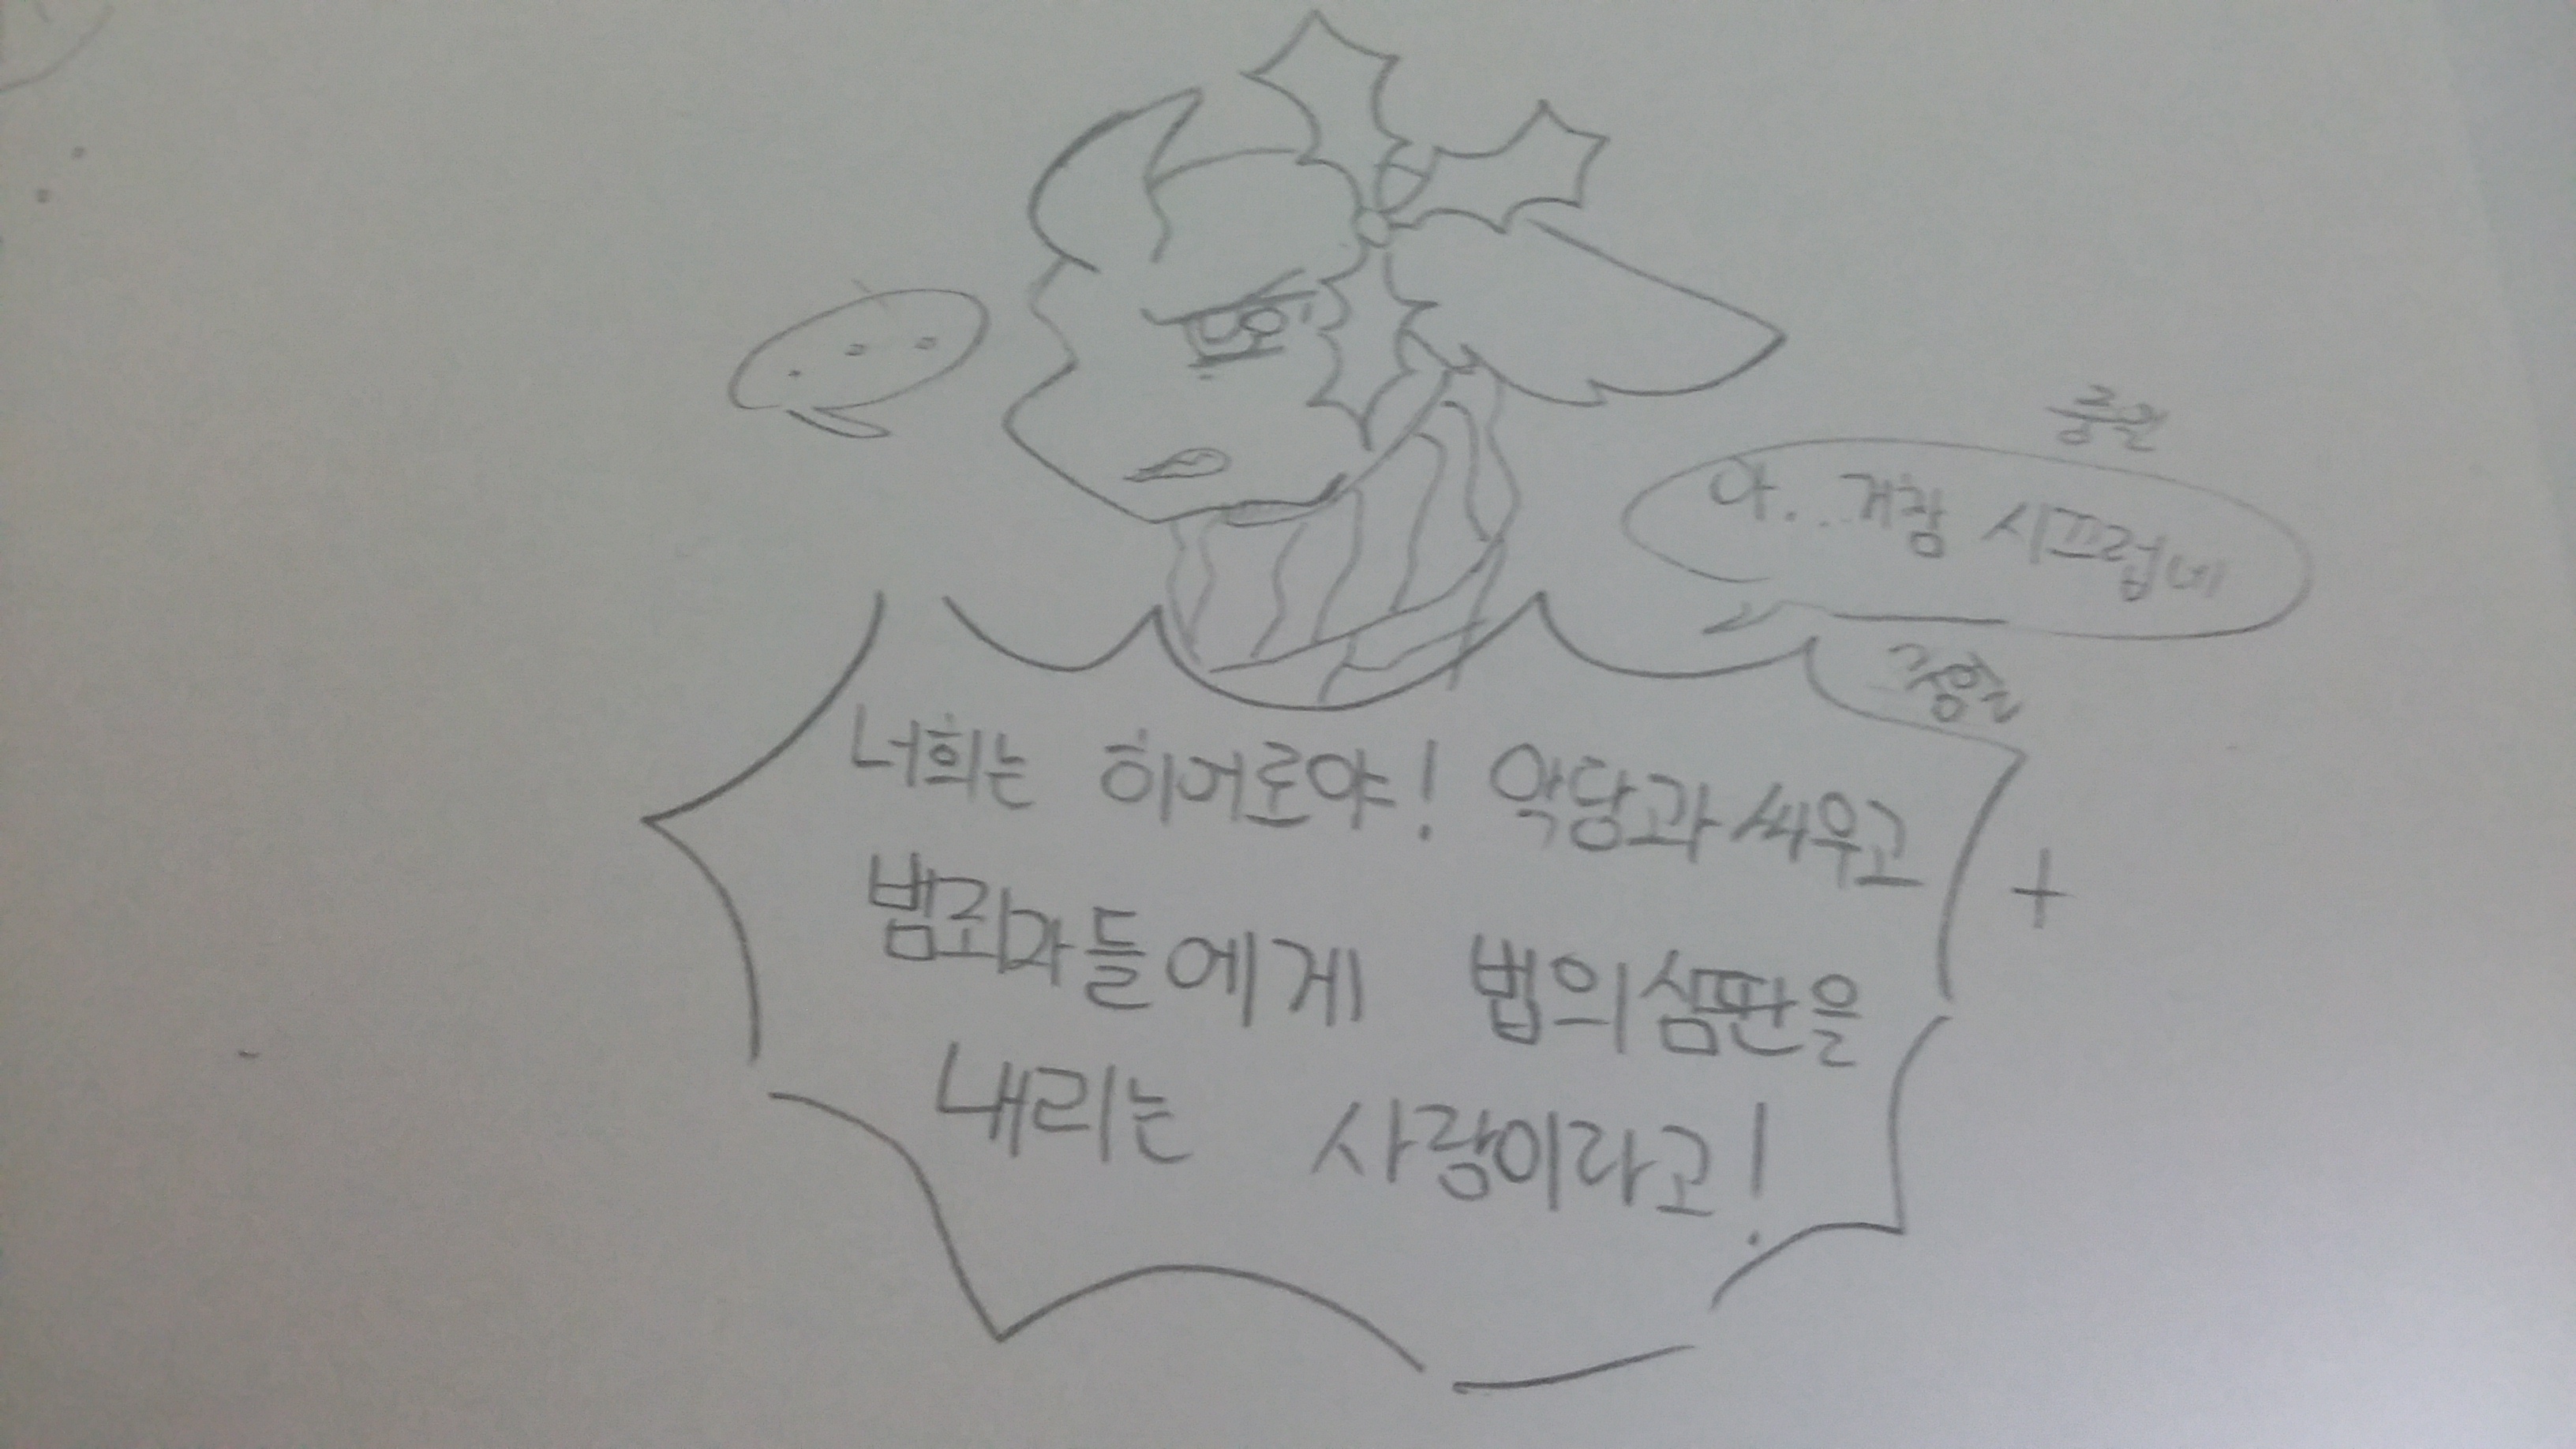 중얼
아...거참 시끄럽네
중얼
너희는 히어로야! 악당과 싸우고
범죄자들에게 법의심판을
내리는 사람이라고!